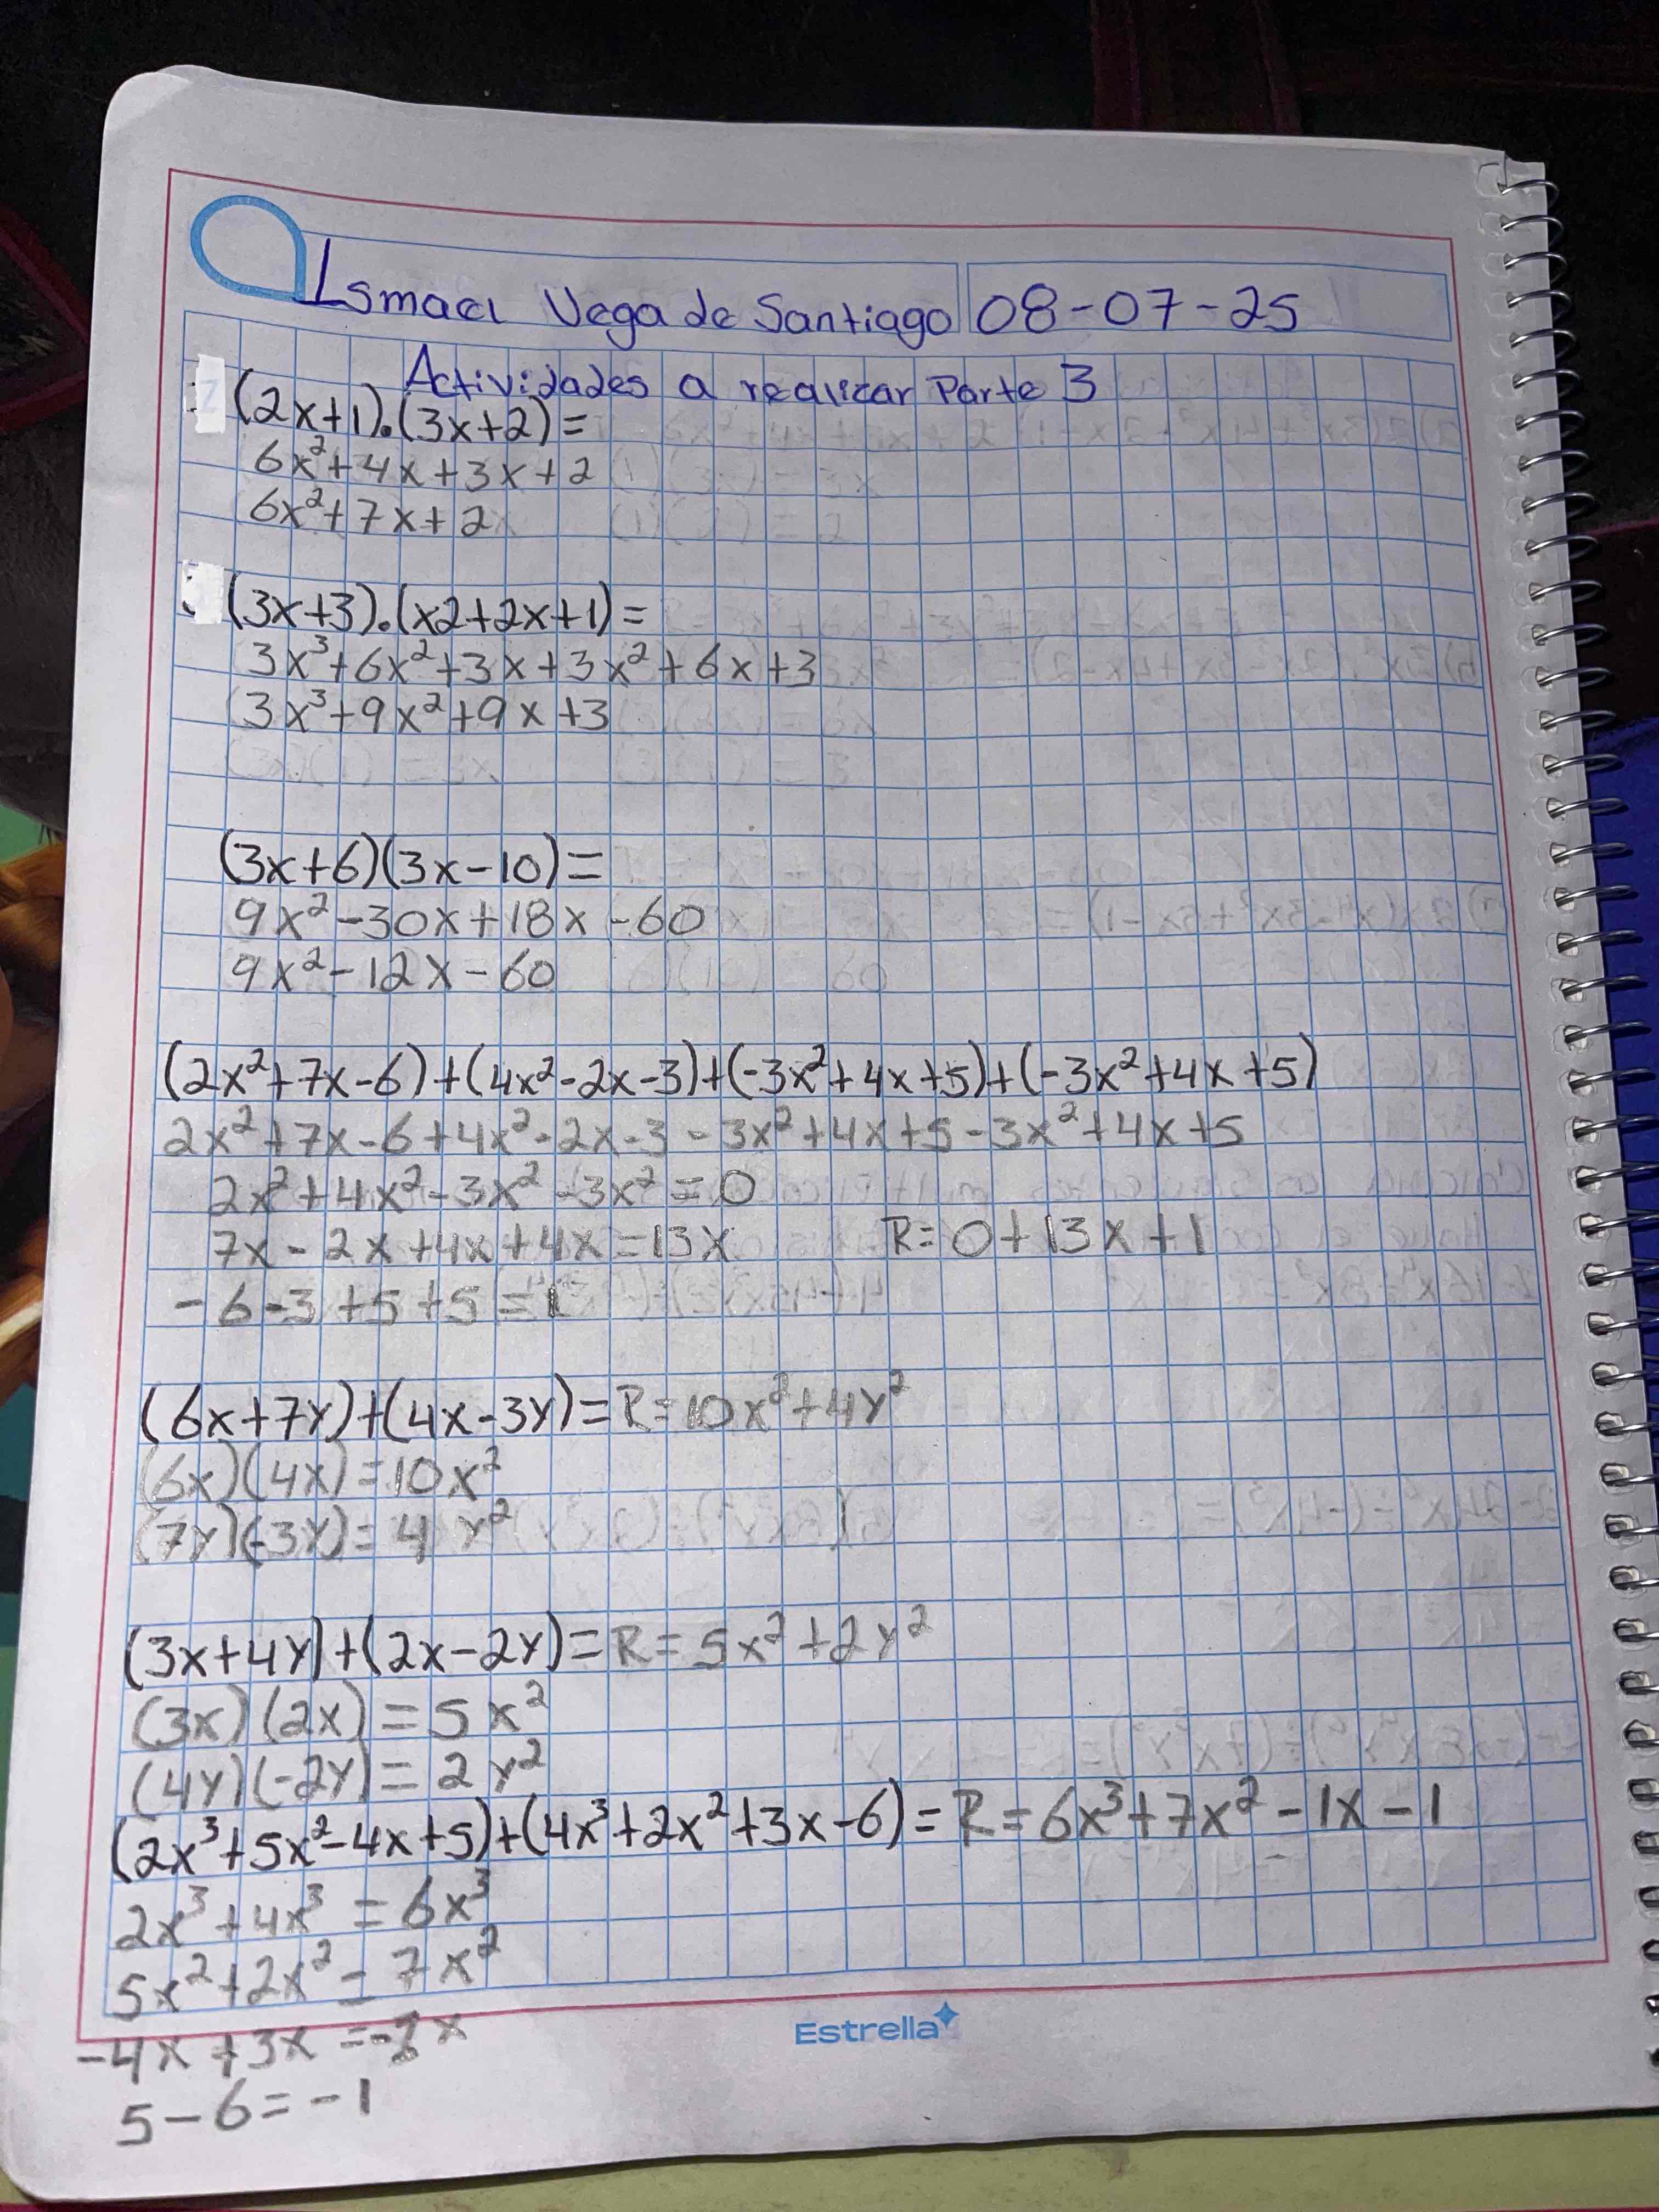 Ismael Vega de Santiago 08-07-25
Actividades a realizar Parte 3
(2x+1).(3x+2)=
6x²+4x+3x+2
6x²+7x+2
(3x+3).(x2+2x+1)=
3x³+6x²+3x+3x²+6x+3
3x³+9x²+9x+3
(3x+6)(3x-10)=
9x²-30x+18x-60
9x²-12x-60
(2x²+7x-6)+(4x²-2x-3)+(-3x²+4x+5)+(-3x²+4x+5)
2x²+7x-6+4x²-2x-3-3x²+4x+5-3x²+4x+5
2x²+4x²-3x²-3x²=0
7x-2x+4x+4x=13x R=0+13x+1
-6-3+5+5=1
(6x+7y)+(4x-3y)=R=10x²+4y²
(6x)(4x)=10x²
(7y)(-3y)=4y²
(3x+4y)+(2x-2y)=R=5x²+2y²
(3x)(2x)=5x²
(4y)(-2y)=2y²
(2x³+5x²-4x+5)+(4x³+2x²+3x-6)=R=6x³+7x²-1x-1
2x³+4x³=6x³
5x²+2x²=7x²
-4x+3x=-1x
5-6=-1
Estrella